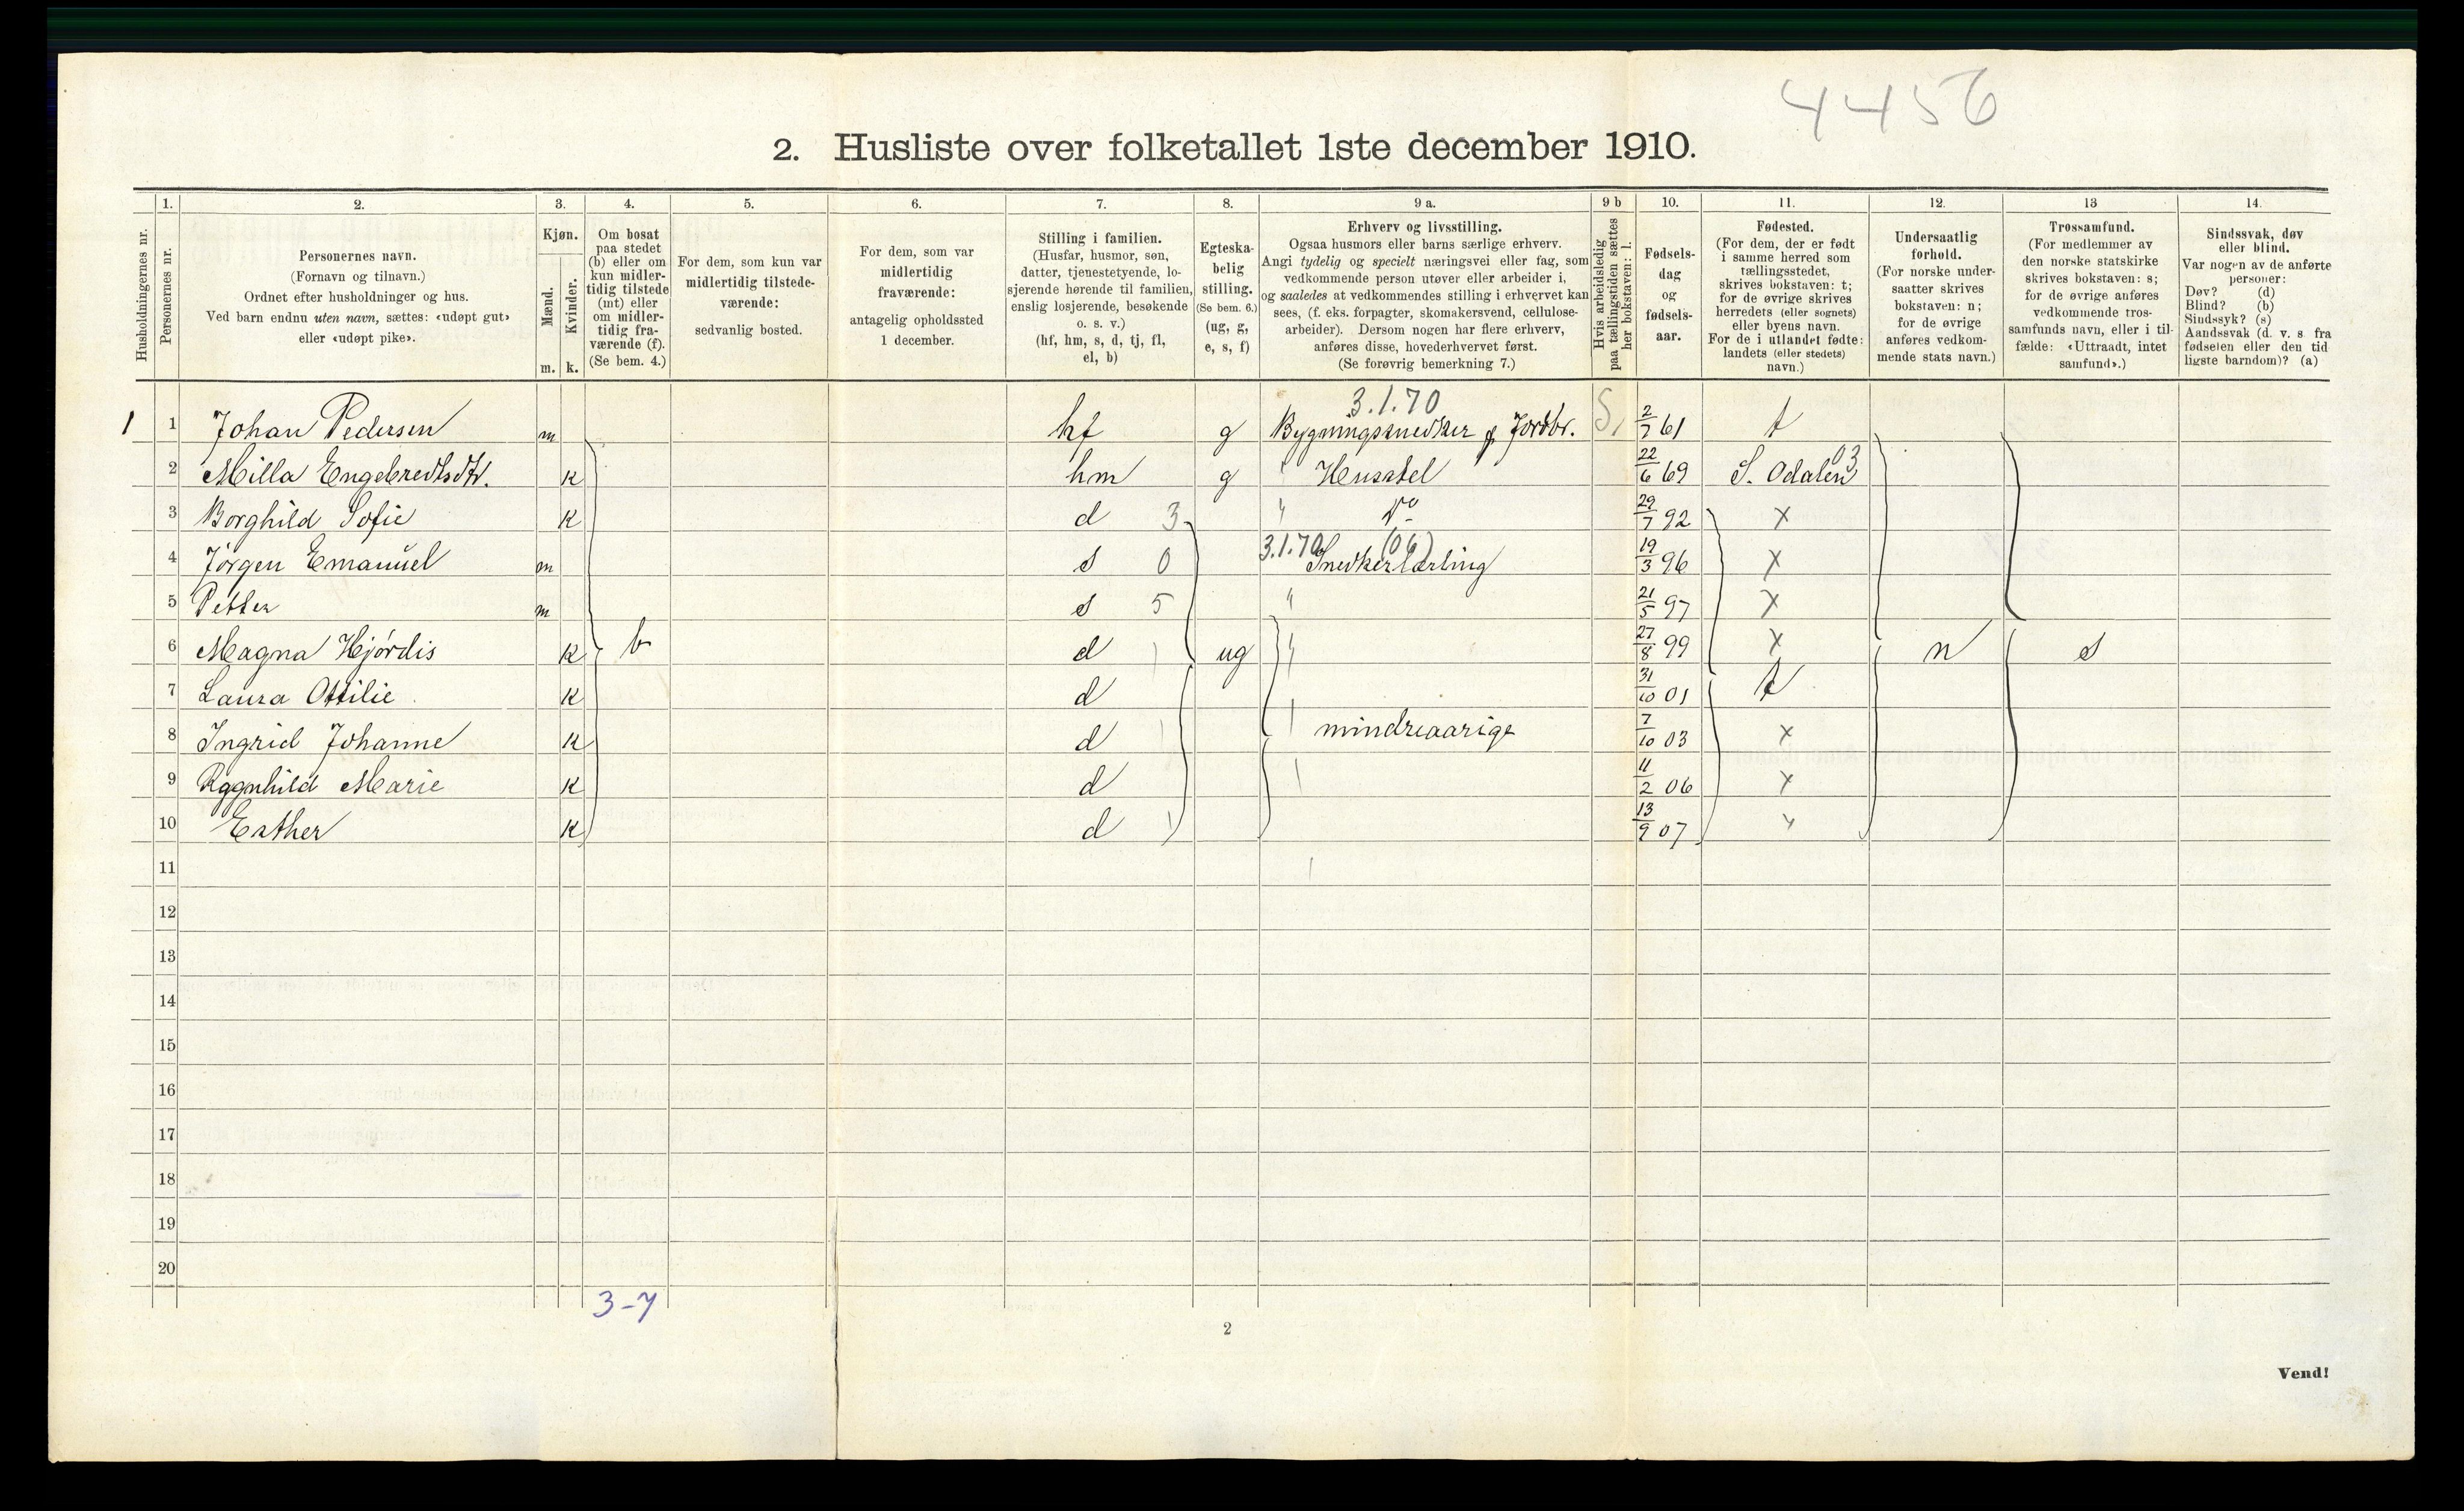 4456
2. Husliste over folketallet 1ste december 1910.
Husholdningernes nr.
1.
Personernes nr.
2.
Personernes navn.
(Fornavn og tilnavn.)
Ordnet efter husholdninger og hus.
Ved barn endnu uten navn, sættes: «udøpt gut»
eller «udøpt pike».
3.
Kjøn.
Mænd.
Kvinder.
m. k.
4.
Om bosat
paa stedet
(b) eller om
kun midler-
tidig tilstede
(mt) eller
om midler-
tidig fra-
værende (f).
(Se bem. 4.)
5.
For dem, som kun var
midlertidig tilstede-
værende:
sedvanlig bosted.
6.
For dem, som var
midlertidig
fraværende:
antagelig opholdssted
1 december.
7.
Stilling i familien.
(Husfar, husmor, søn,
datter, tjenestetyende, lo-
sjerende hørende til familien,
enslig losjerende, besøkende
o. s. v.)
(hf, hm, s, d, tj, fl,
el, b)
8.
Egteska-
belig
stilling.
(Se bem. 6.)
(ug, g,
e, s, f)
9 a.
Erhverv og livsstilling.
Ogsaa husmors eller barns særlige erhverv.
Angi tydelig og specielt næringsvei eller fag, som
vedkommende person utøver eller arbeider i,
og saaledes at vedkommendes stilling i erhvervet kan
sees, (f. eks. forpagter, skomakersvend, cellulose-
arbeider). Dersom nogen har flere erhverv,
anføres disse, hovederhvervet først.
(Se forøvrig bemerkning 7.)
9 b
Hvis arbeidsledig
paa tællingstiden sættes
her bokstaven: l.
10.
Fødsels-
dag
og
fødsels-
aar.
11.
Fødested.
(For dem, der er født
i samme herred som
tællingsstedet,
skrives bokstaven: t;
for de øvrige skrives
herredets (eller sognets)
eller byens navn.
For de i utlandet fødte:
landets (eller stedets)
navn.)
12.
Undersaatlig
forhold.
(For norske under-
saatter skrives
bokstaven: n;
for de øvrige
anføres vedkom-
mende stats navn.)
13
Trossamfund.
(For medlemmer av
den norske statskirke
skrives bokstaven: s;
for de øvrige anføres
vedkommende tros-
samfunds navn, eller i til-
fælde: «Uttraadt, intet
samfund».)
14.
Sindssvak, døv
eller blind.
Var nogen av de anførte
personer:
Døv? (d)
Blind? (b)
Sindssyk? (s)
Aandssvak (d. v. s. fra
fødselen eller den tid
ligste barndom)? (a)
3.1.70
1 1 Johan Pedersen m hf g Bygningssnedker & Jordbr. S, 2/7 61 t
03
2 Milla Engebredtsdtr. k hm g " Husstel 22/6 69 S. Odalen
3 Borghild Sofie k d 3 " Do 29/7 92 x
3.1.70 (06)
4 Jörgen Emanuel m s 0 Snedkerlærling 19/3 96 x
5 Petter m s 5 " 21/5 97 x
6 Magna Hjórdis k b d ug " 27/8 99 x n s
7 Laura Ottilie k d 31/10 01 t
8 Ingrid Johanne k d mindreaarige 7/10 03 x
9 Ragnhild Marie k d 11/2 06 x
10 Esther k d 13/9 07 "
11
12
13
14
15
16
17
18
19
20
3-7
2
Vend!